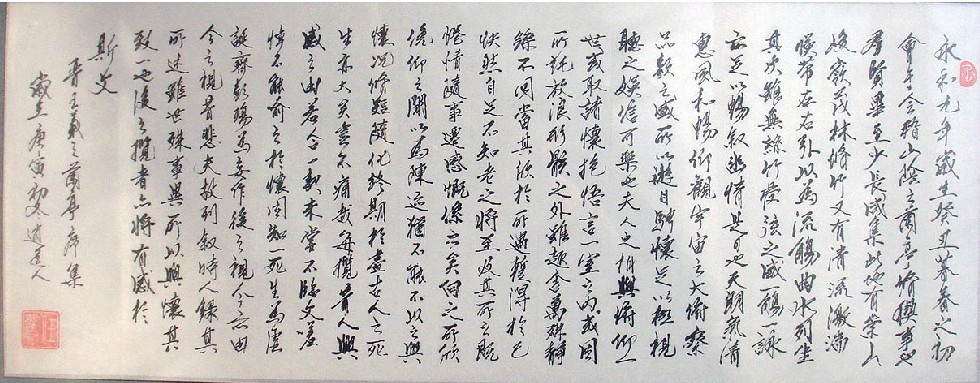 永和九年歲在癸丑暮春之初
會於會稽山陰之蘭亭脩稧事也
群賢畢至少長咸集此地有崇山
峻嶺茂林脩竹又有清流激湍
暎帶左右引以為流觴曲水列坐
其次雖無絲竹管弦之盛一觴一詠
亦足以暢叙幽情是日也天朗氣清
惠風和暢仰觀宇宙之大俯察
品類之盛所以遊目騁懷足以極視
聽之娛信可樂也夫人之相與俯仰一
世或取諸懷抱悟言一室之內或因
所託放浪形骸之外雖趣舍萬殊靜
躁不同當其欣於所遇蹔得於己
怏然自足不知老之將至及其所之既
惓情隨事遷感慨係之矣向之所欣
俛仰之間以為陳迹猶不能不以之興
懷況脩短隨化終期於盡古人云死
生亦大矣豈不痛哉每攬昔人興
感之由若合一契未嘗不臨文嗟
悼不能喻之於懷固知一死生為虛
誕齊彭殤為妄作後之視今亦由
今之視昔悲夫故列叙時人錄其
所述雖世殊事異所以興懷其
致一也後之攬者亦將有感於
斯文
王羲之蘭亭序集
歲在庚寅初冬